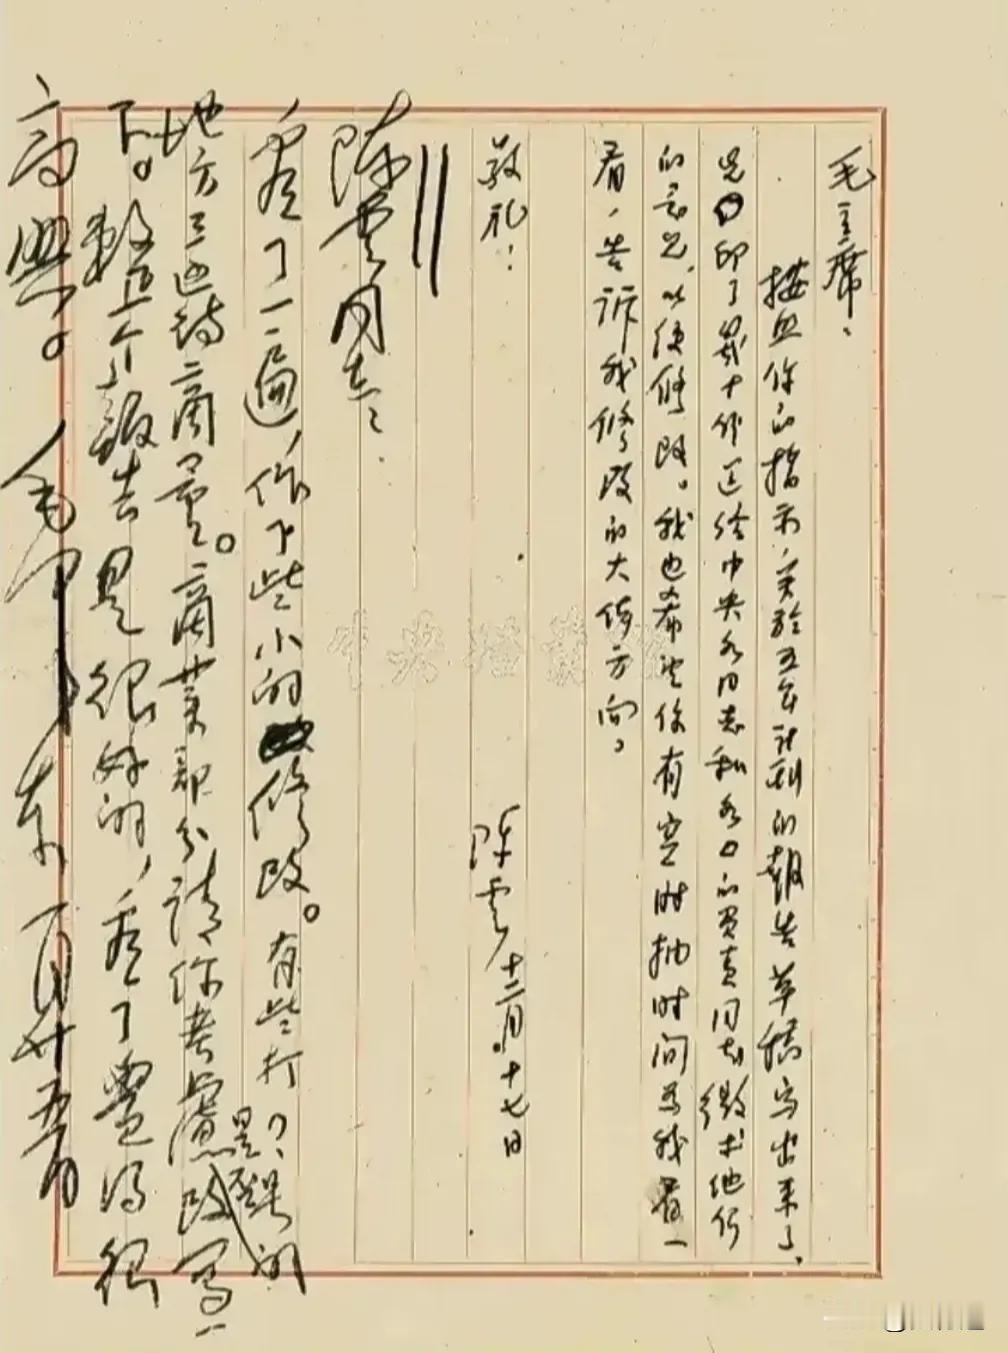 毛主席：
按照你的指示，关於五年计划的报告草稿写出来了，
先印了几十份送给中央各同志和各口的负责同志徵求他们
的意见，以便修改。我也希望你有空时抽时间为我看一
看，告诉我修改的大体方向。
敬礼！
陈云 十二月十七日
陈云同志：
看了一遍，作了些小的修改。有些打？号的
地方是
地方三近待商量。商业部分请你考虑改写一
下。整个报告是很好的，看了觉得很
高兴。
毛泽东 十二月廿五日